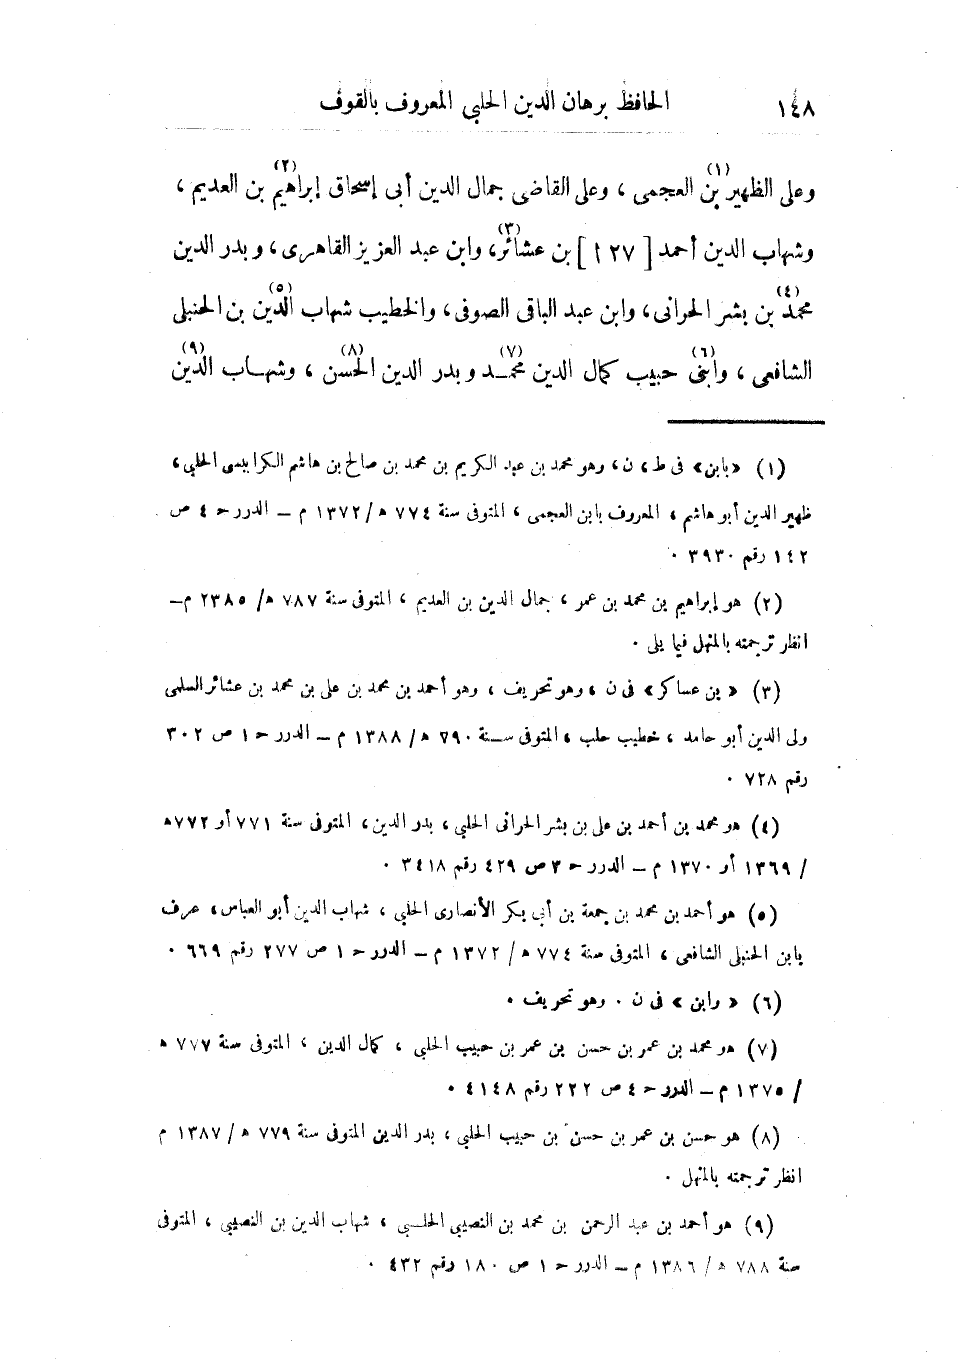 ١٤٨ الحافظ برهان الدين الحلبي المعروف بالقوف
وعلى الظهير بن (١) العجمى ، وعلى القاضى جمال الدين أبى إسحاق إبراهيم (٢) بن العديم ،
وشهاب الدين أحمد [ ١٢٧ ] بن عشائر (٣)، وابن عبد العزيز القاهرى، وبدر الدين
محمد (٤) بن بشر الحرانى، وابن عبد الباقى الصوفى، والخطيب شهاب الدين (٥) بن الحنبلى
الشافعى ، وابنى (٦) حبيب كمال الدين محمد (٧) وبدر الدين الحسن (٨) ، وشهاب الدين (٩)
(١) «بابن» فى ط، ن، وهو محمد بن عبد الكريم بن محمد بن صالح بن هاشم الكرابيسى الحلبى،
ظهير الدين أبو هاشم ، المعروف بابن العجمى ، المتوفى سنة ٧٧٤ ه/١٣٧٢ م – الدرر ح ٤ ص
١٤٢ رقم ٣٩٣٠ .
(٢) هو إبراهيم بن محمد بن عمر ، جمال الدين بن العديم ، المتوفى سنة ٧٨٧ ه/ ٢٣٨٥ م–
انظر ترجمته بالمنهل فيما يلى .
(٣) « بن عساكر» فى ن ، وهو تحريف ، وهو أحمد بن محمد بن على بن محمد بن عشائر السلمى
ولى الدين أبو حامد ، خطيب حلب ، المتوفى سنة ٧٩٠ ه/ ١٣٨٨ م – الدرر ح ١ ص ٣٠٢
رقم ٧٢٨ .
(٤) هو محمد بن أحمد بن على بن بشر الحرانى الحلبى ، بدر الدين، المتوفى سنة ٧٧١ أو ٧٧٢ه
/ ١٣٦٩ أو ١٣٧٠ م – الدرر ح ٣ ص ٤٢٩ رقم ٣٤١٨ .
(٥) هو أحمد بن محمد بن جمعة بن أبي بكر الأنصارى الحلبى ، شهاب الدين أبو العباس، عرف
بابن الحنبلى الشافعى ، المتوفى سنة ٧٧٤ ه/ ١٣٧٢ م – الدرر ح ١ ص ٢٧٧ رقم ٦٦٩ .
(٦) « وابن » فى ن . وهو تحريف .
(٧) هو محمد بن عمر بن حسن بن عمر بن حبيب الحلبي ، كمال الدين ، المتوفى سنة ٧٧٧ ه
/ ١٣٧٥ م – الدرر ح ٤ ص ٢٢٢ رقم ٤١٤٨ .
(٨) هو حسن بن عمر بن حسن بن حبيب الحلبي ، بدر الدين المتوفى سنة ٧٧٩ ه/ ١٣٨٧ م
انظر ترجمته بالمنهل .
(٩) هو أحمد بن عبد الرحمن بن محمد بن النصيبي الحلبى ، شهاب الدين بن النصيبي ، المتوفى
سنة ٧٨٨ ه/ ١٣٨٦ م – الدرر ح ١ ص ١٨٠ رقم ٤٣٢ .